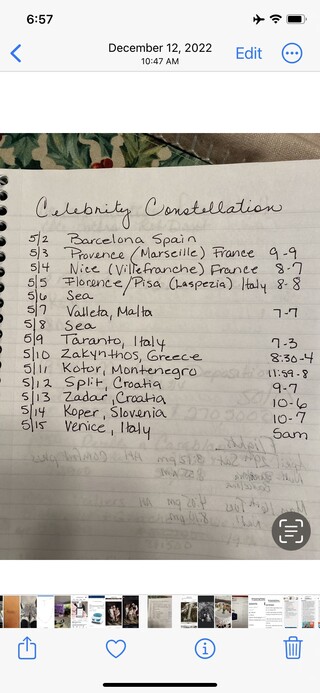 6:57
December 12, 2022
10:47 AM
Edit
Celebrity Constellation
5/2 Barcelona Spain
5/3 Provence (Marseille) France 9-9
5/4 Nice (Villefranche) France 8-7
5/5 Florence/Pisa (Laspezia) Italy 8-8
5/6 Sea
5/7 Valleta, Malta 7-7
5/8 Sea
5/9 Taranto, Italy 7-3
5/10 Zakynthos, Greece 8:30-4
5/11 Kotor, Montenegro 11:59-8
5/12 Split, Croatia 9-7
5/13 Zadar, Croatia 10-6
5/14 Koper, Slovenia 10-7
5/15 Venice, Italy 5am